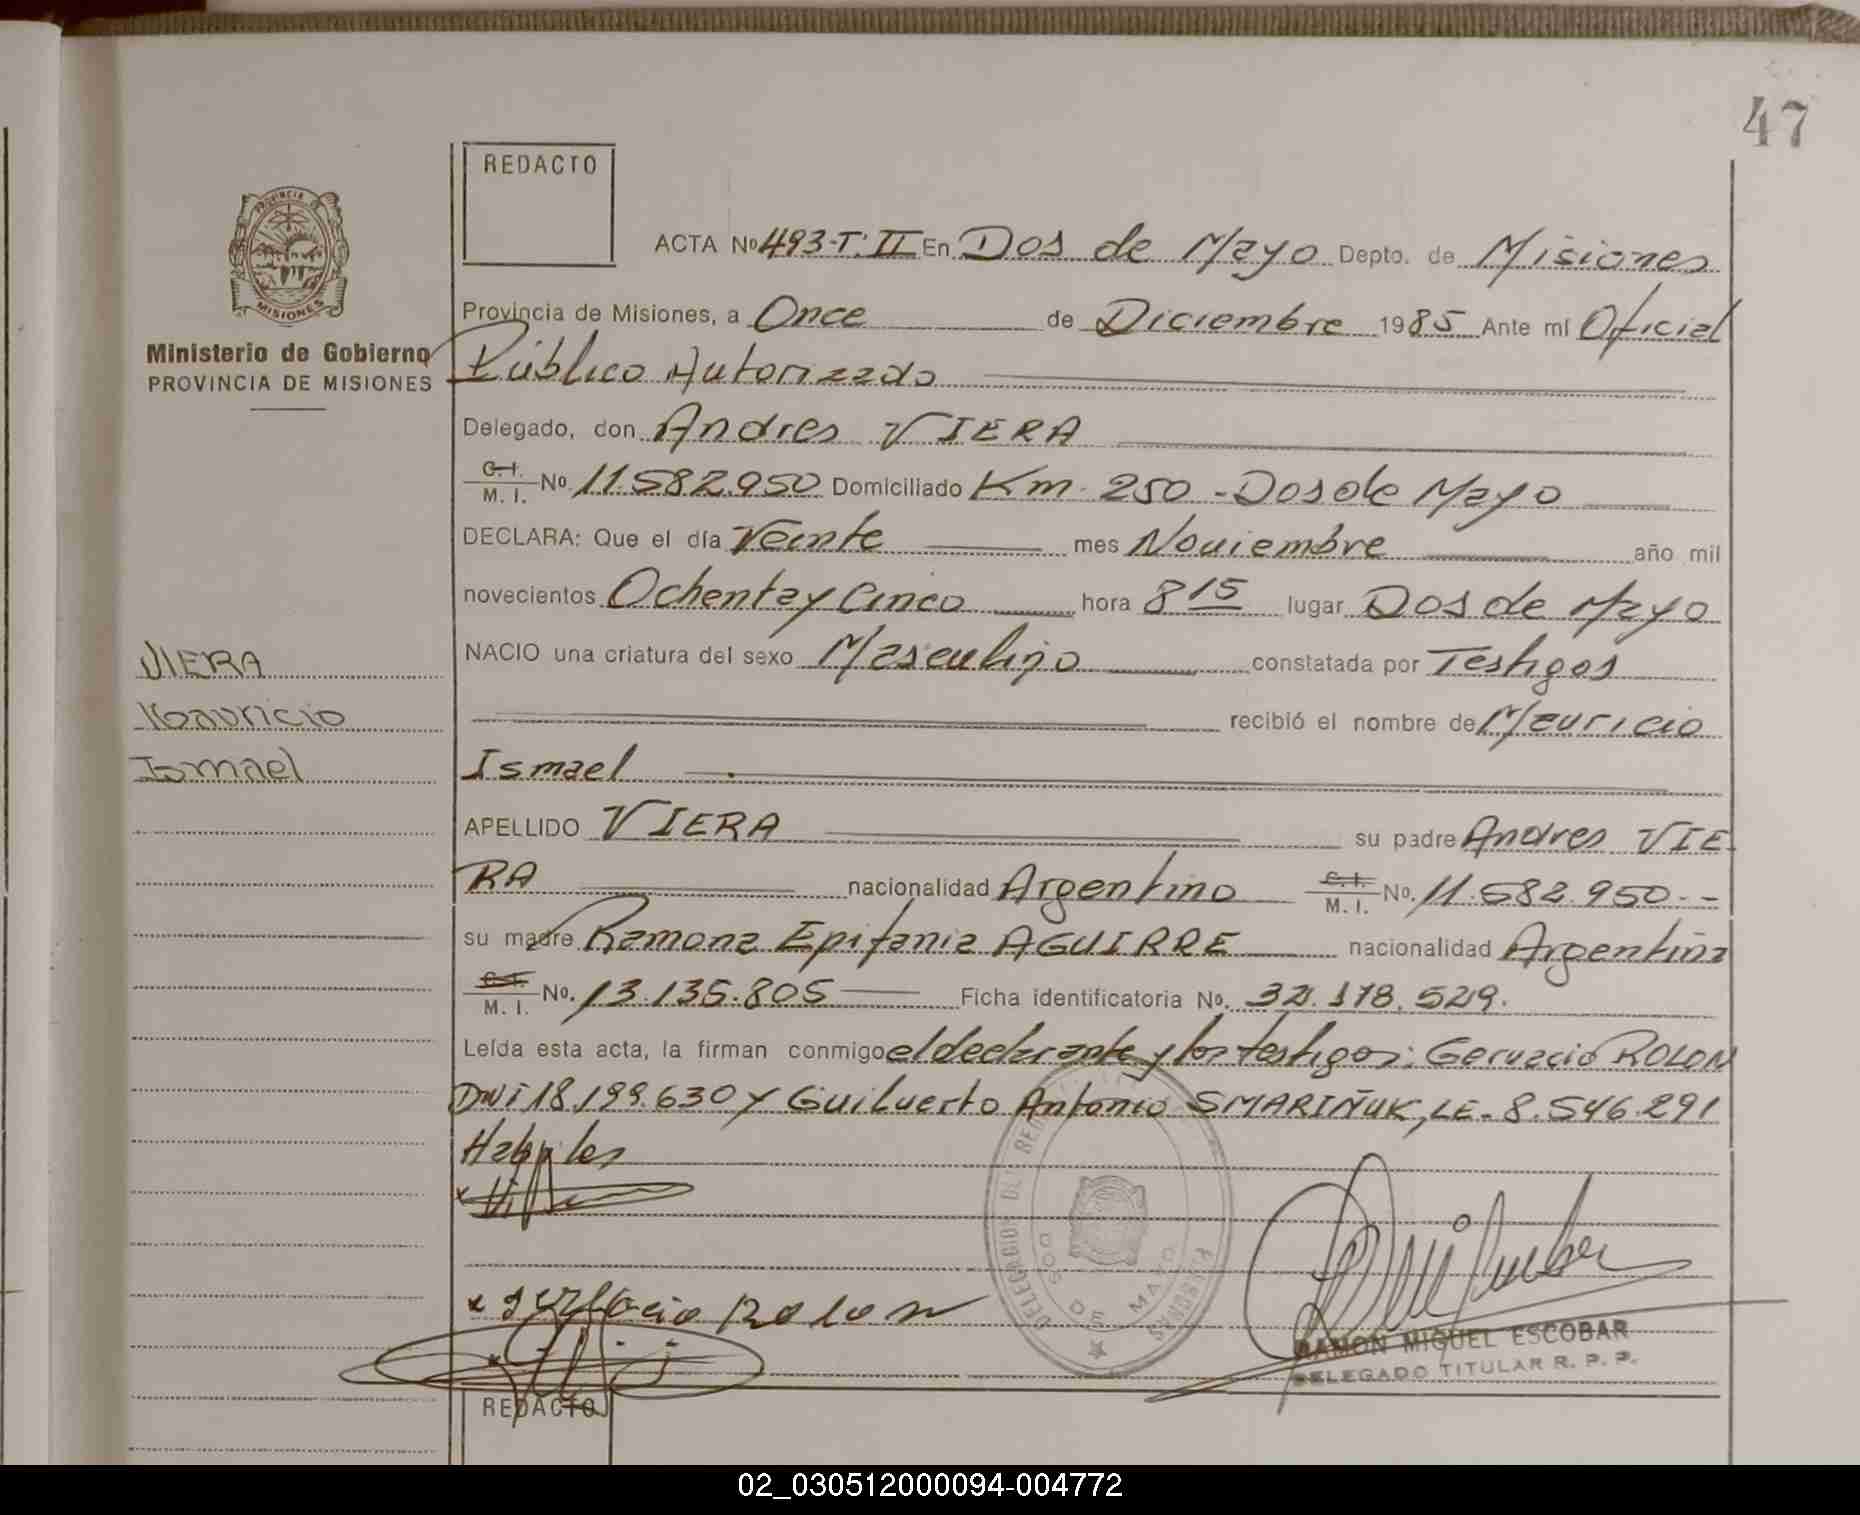 47
REDACTO
PROVINCIA DE
MISIONES
Ministerio de Gobierno
PROVINCIA DE MISIONES
ACTA Nº 493-T: II En Dos de Mayo Depto. de Misiones
Provincia de Misiones, a Once de Diciembre 1985 Ante mí Oficial
Público Autorizado
Delegado, don Andres VIERA
C. I. M. I. No. 11.582.950 Domiciliado Km. 250 - Dos de Mayo
DECLARA: Que el día Veinte mes Noviembre año mil
novecientos Ochenta y Cinco hora 8 15 lugar Dos de Mayo
NACIO una criatura del sexo Masculino constatada por Testigos
recibió el nombre de Mauricio
Ismael
APELLIDO VIERA su padre Andres VIE-
RA nacionalidad Argentino C. I. M. I. No. 11.582.950.--
su madre Ramona Epifania AGUIRRE nacionalidad Argentina
C. I. M. I. No. 13.135.805 Ficha identificatoria No. 32.178.529.
Leída esta acta, la firman conmigo el declarante y los testigos: Gervacio ROLON
DNI 18.199.630 y Guilverto Antonio SMARIÑUK, LE. 8.546.291
Habiles
VIERA
Mauricio
Ismael
Rolon
DELEGACION DEL
DOS DE MAYO
RAMON MIGUEL ESCOBAR
DELEGADO TITULAR R. P. P.
REDACTO
02_030512000094-004772